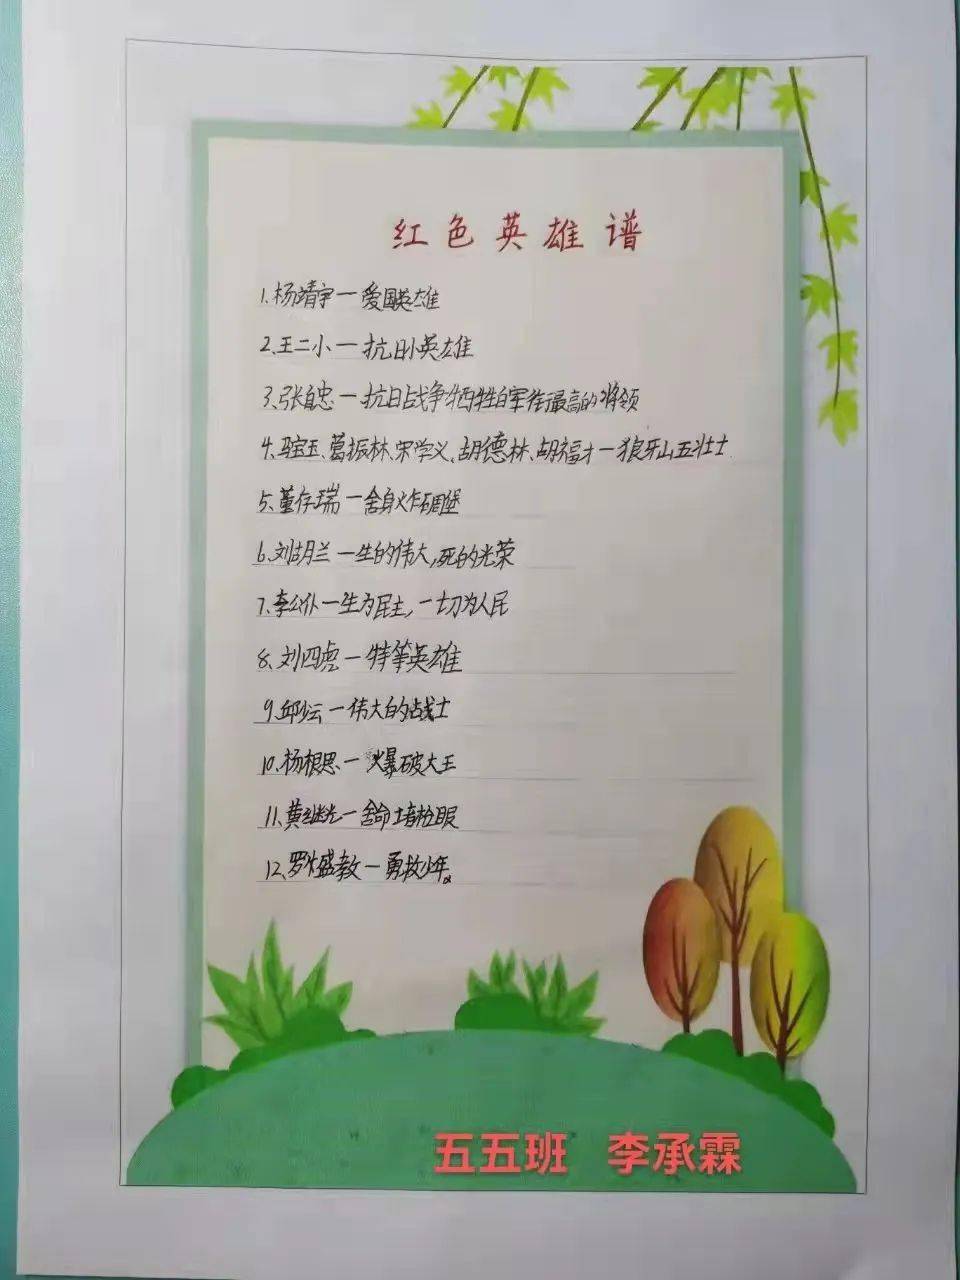 红色英雄谱
1.杨靖宇一爱国英雄
2.王二小一抗日小英雄
3.张自忠一抗日战争牺牲的军衔最高的将领
4.马宝玉、葛振林、宋学义、胡德林、胡福才一狼牙山五壮士
5.董存瑞一舍身炸碉堡
6.刘胡兰一生的伟大,死的光荣
7.李公仆一生为民主,一切为人民
8.刘四虎一特等英雄
9.邱少云一伟大的战士
10.杨根思一爆破大王
11.黄继光一舍命堵枪眼
12.罗盛教一勇救少年。
五五班 李承霖